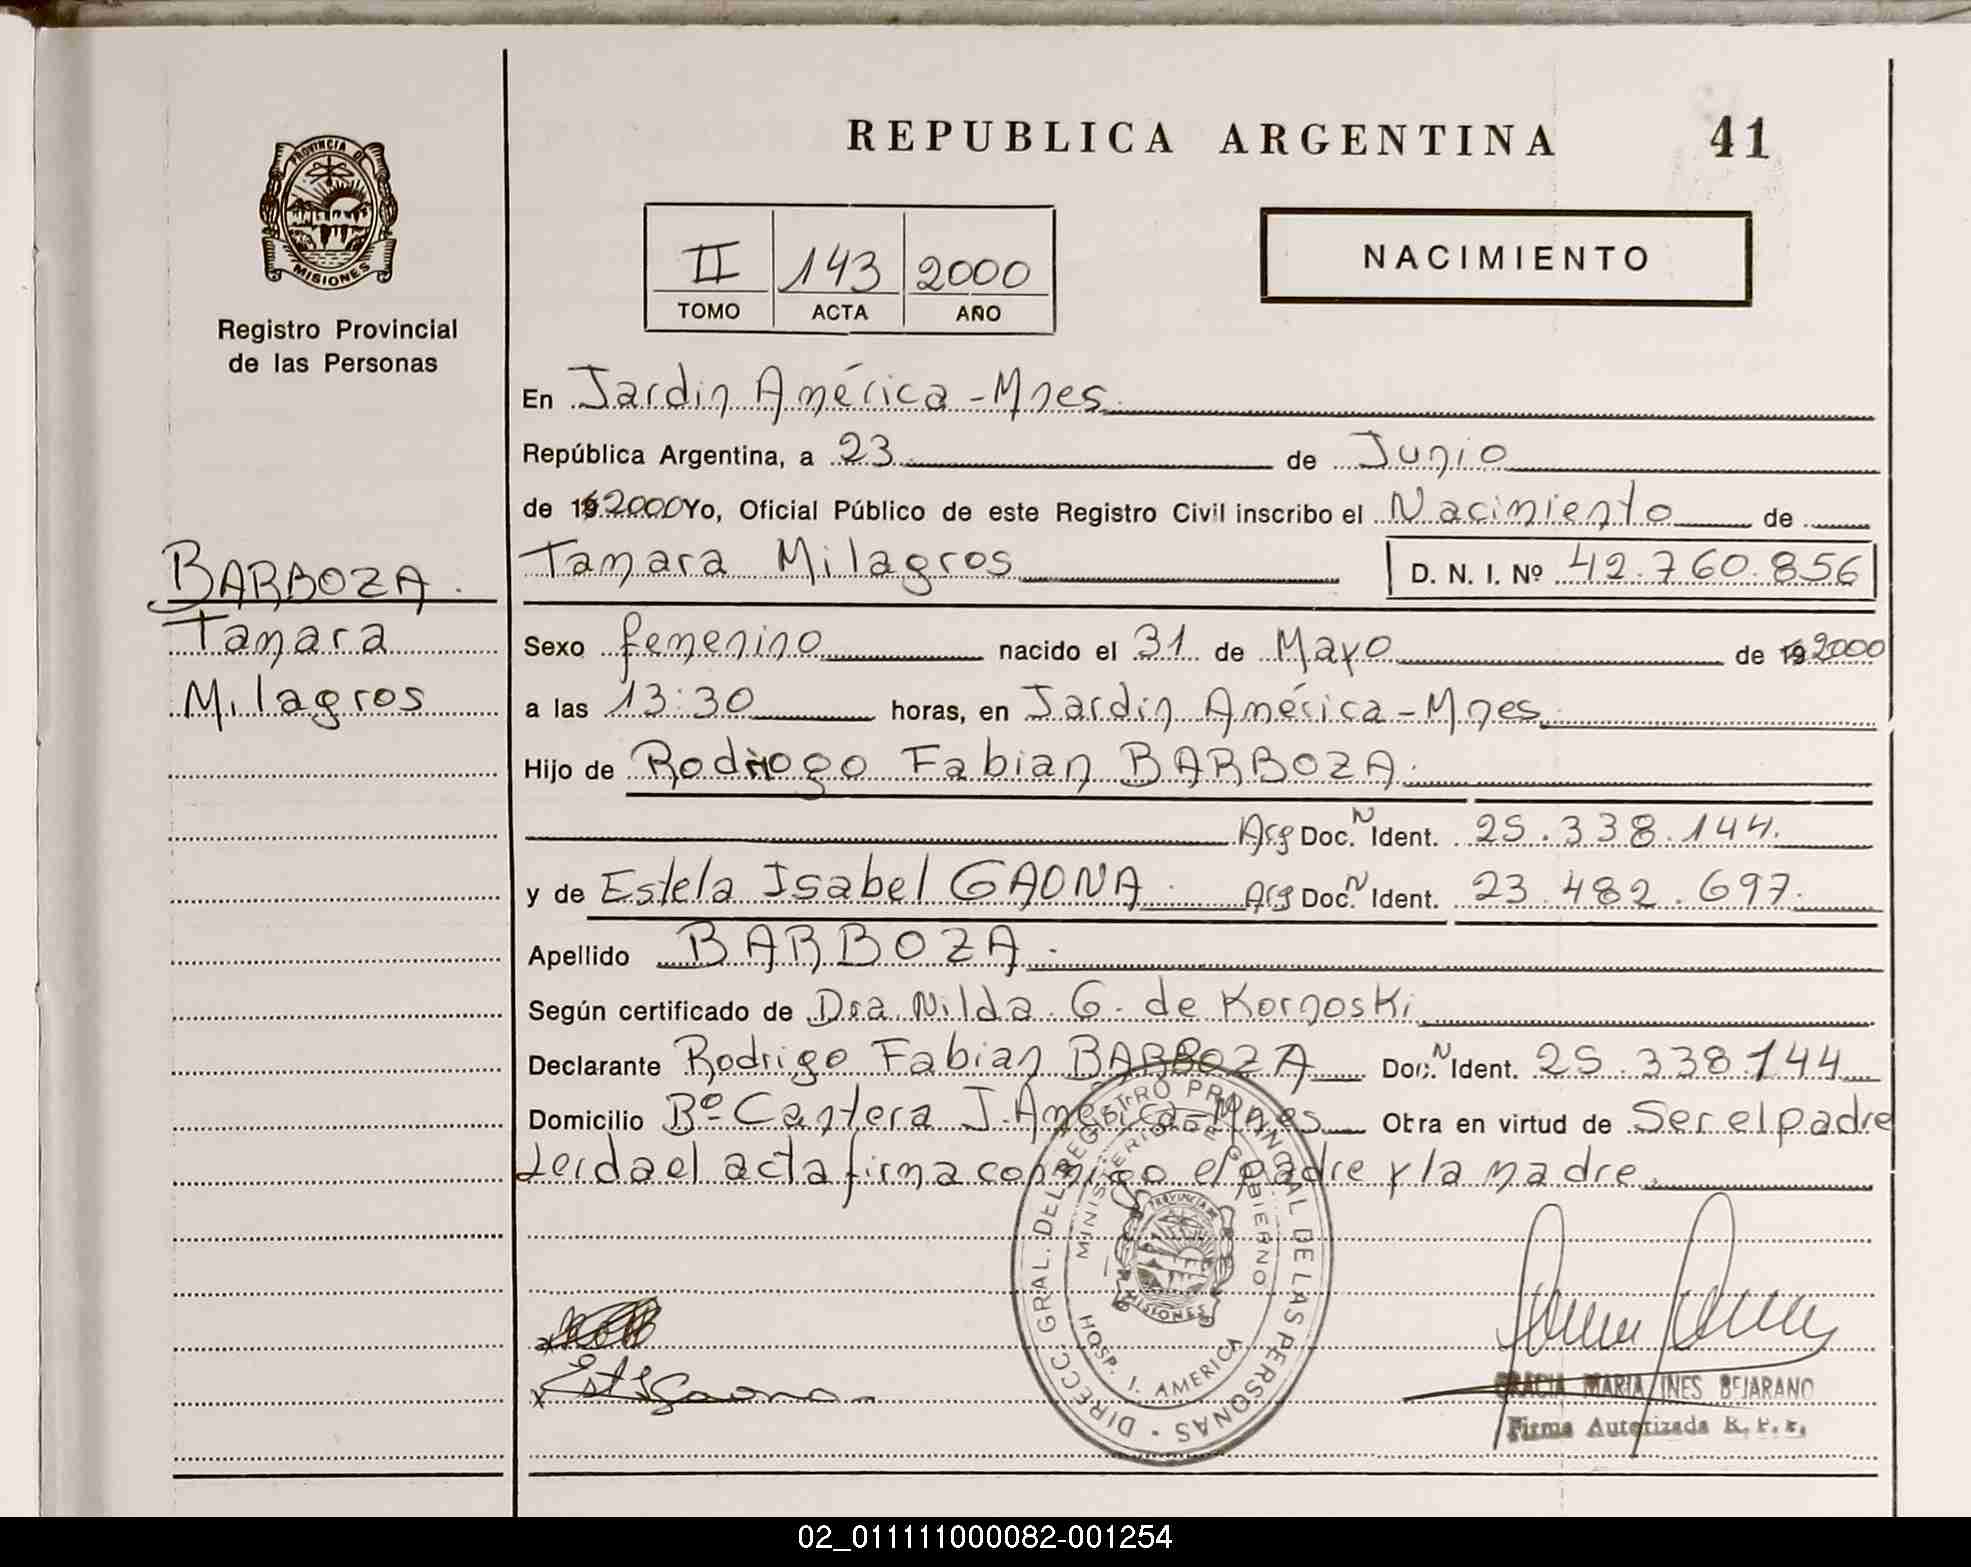 REPUBLICA ARGENTINA 41
PROVINCIA DE
MISIONES
Registro Provincial
de las Personas
II 143 2000
TOMO ACTA AÑO
NACIMIENTO
En Jardin América - Mnes.
República Argentina, a 23 de Junio
de 19 2000 Yo, Oficial Público de este Registro Civil inscribo el Nacimiento de
BARBOZA.
Tamara
Milagros
Tamara Milagros D. N. I. Nº 42.760.856
Sexo femenino nacido el 31 de Mayo de 19 2000
a las 13:30 horas, en Jardin América - Mnes
Hijo de Rodriogo Fabian BARBOZA.
Arg Doc. N Ident. 25.338.144.
y de Estela Isabel GAONA. Arg Doc. N Ident. 23.482.697.
Apellido BARBOZA.
Según certificado de Dra. Nilda G. de Kornoski
Declarante Rodrigo Fabian BARBOZA Doc. N Ident. 25.338.144
Domicilio Bº Cantera J. América - Mnes Otra en virtud de Ser el padre
Leida el acta firma conmigo el padre y la madre.
DIRECC. GRAL. DEL REGISTRO PROVINCIAL DE LAS PERSONAS
MINISTERIO DE GOBIERNO
PROVINCIA DE
MISIONES
HOSP. J. AMERICA
x
x Est I Gaona
GRACIA MARIA INES BEJARANO
Firma Autorizada R. P. P.
02_011111000082-001254